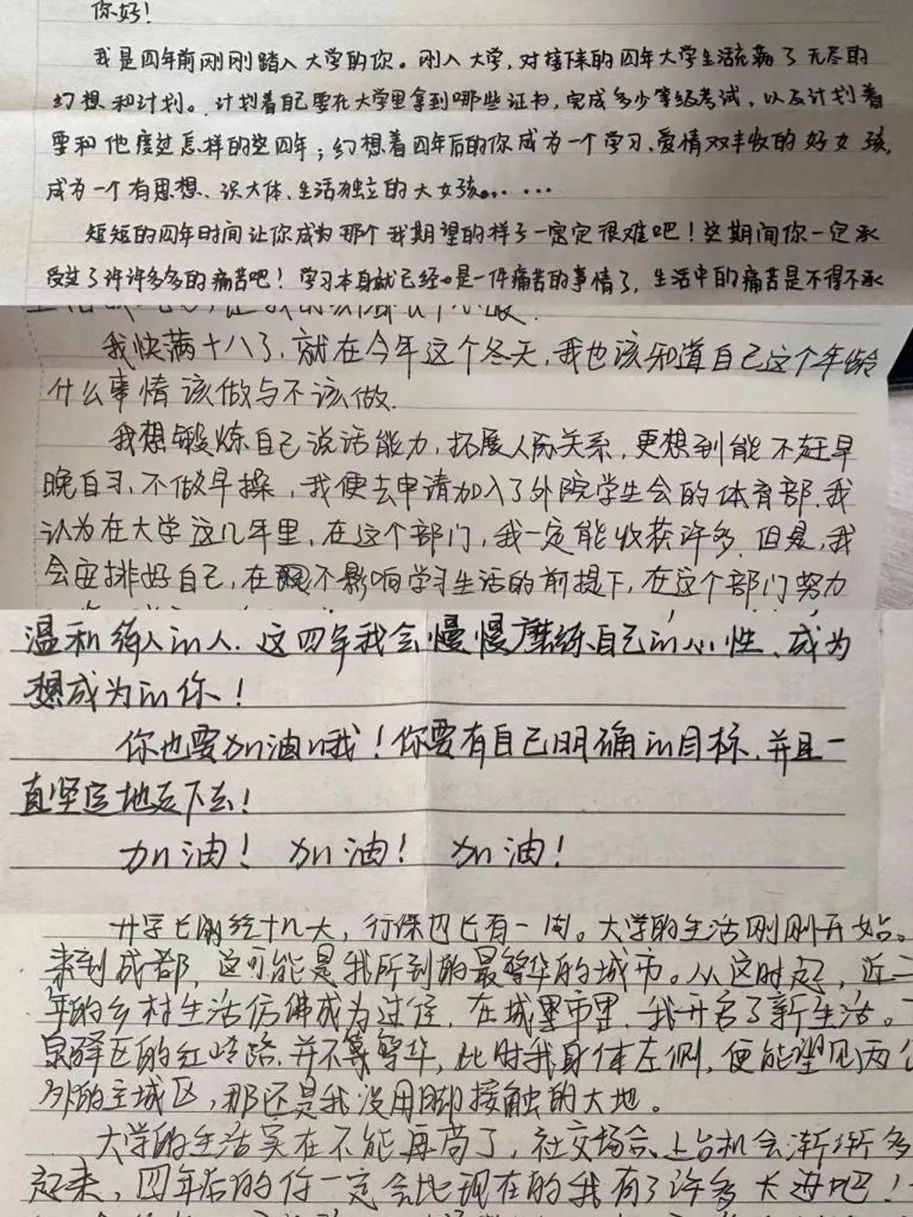 你好!
我是四年前刚刚踏入大学的你。刚入大学,对接下来的四年大学生活充满了无尽的
幻想和计划。计划着自己要在大学里拿到哪些证书,完成多少等级考试,以及计划着
要和他度过怎样的这四年;幻想着四年后的你成为一个学习、爱情双丰收的好女孩,
成为一个有思想、识大体、生活独立的大女孩……
短短的四年时间让你成为那个我期望的样子一定很难吧!这期间你一定承
受过了许许多多的痛苦吧!学习本身就已经是一件痛苦的事情了,生活中的痛苦是不得不承
我快满十八了,就在今年这个冬天,我也该知道自己这个年龄
什么事情该做与不该做.
我想锻炼自己说话能力,拓展人际关系,更想到能不赶早
晚自习,不做早操,我便去申请加入了外院学生会的体育部.我
认为在大学这几年里,在这个部门,我一定能收获许多.但是,我
会安排好自己,在不影响学习生活的前提下,在这个部门努力
温和待人的人.这四年我会慢慢磨练自己的心性、成为
想成为的你!
你也要加油哦!你要有自己明确的目标,并且一
直坚定地走下去!
加油! 加油! 加油!
开学已刚经十几天,行课也已有一周。大学的生活刚刚开始。
来到成都,这可能是我所到的最繁华的城市。从这时起,近二
年的乡村生活仿佛成为过往,在城里市里,我开启了新生活。
泉驿区的红岭路,并不算繁华,此时我身体左侧,便能望见两公
外的主城区,那还是我没用脚接触的大地。
大学的生活实在不能再苟了,社交场合、上台机会渐渐多
起来,四年后的你一定会比现在的我有了许多大进吧!